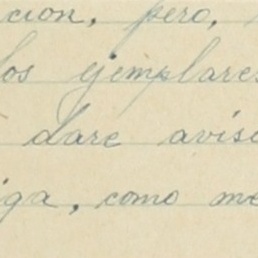 cion, pero,
los ejemplares
dare aviso
iga, como me